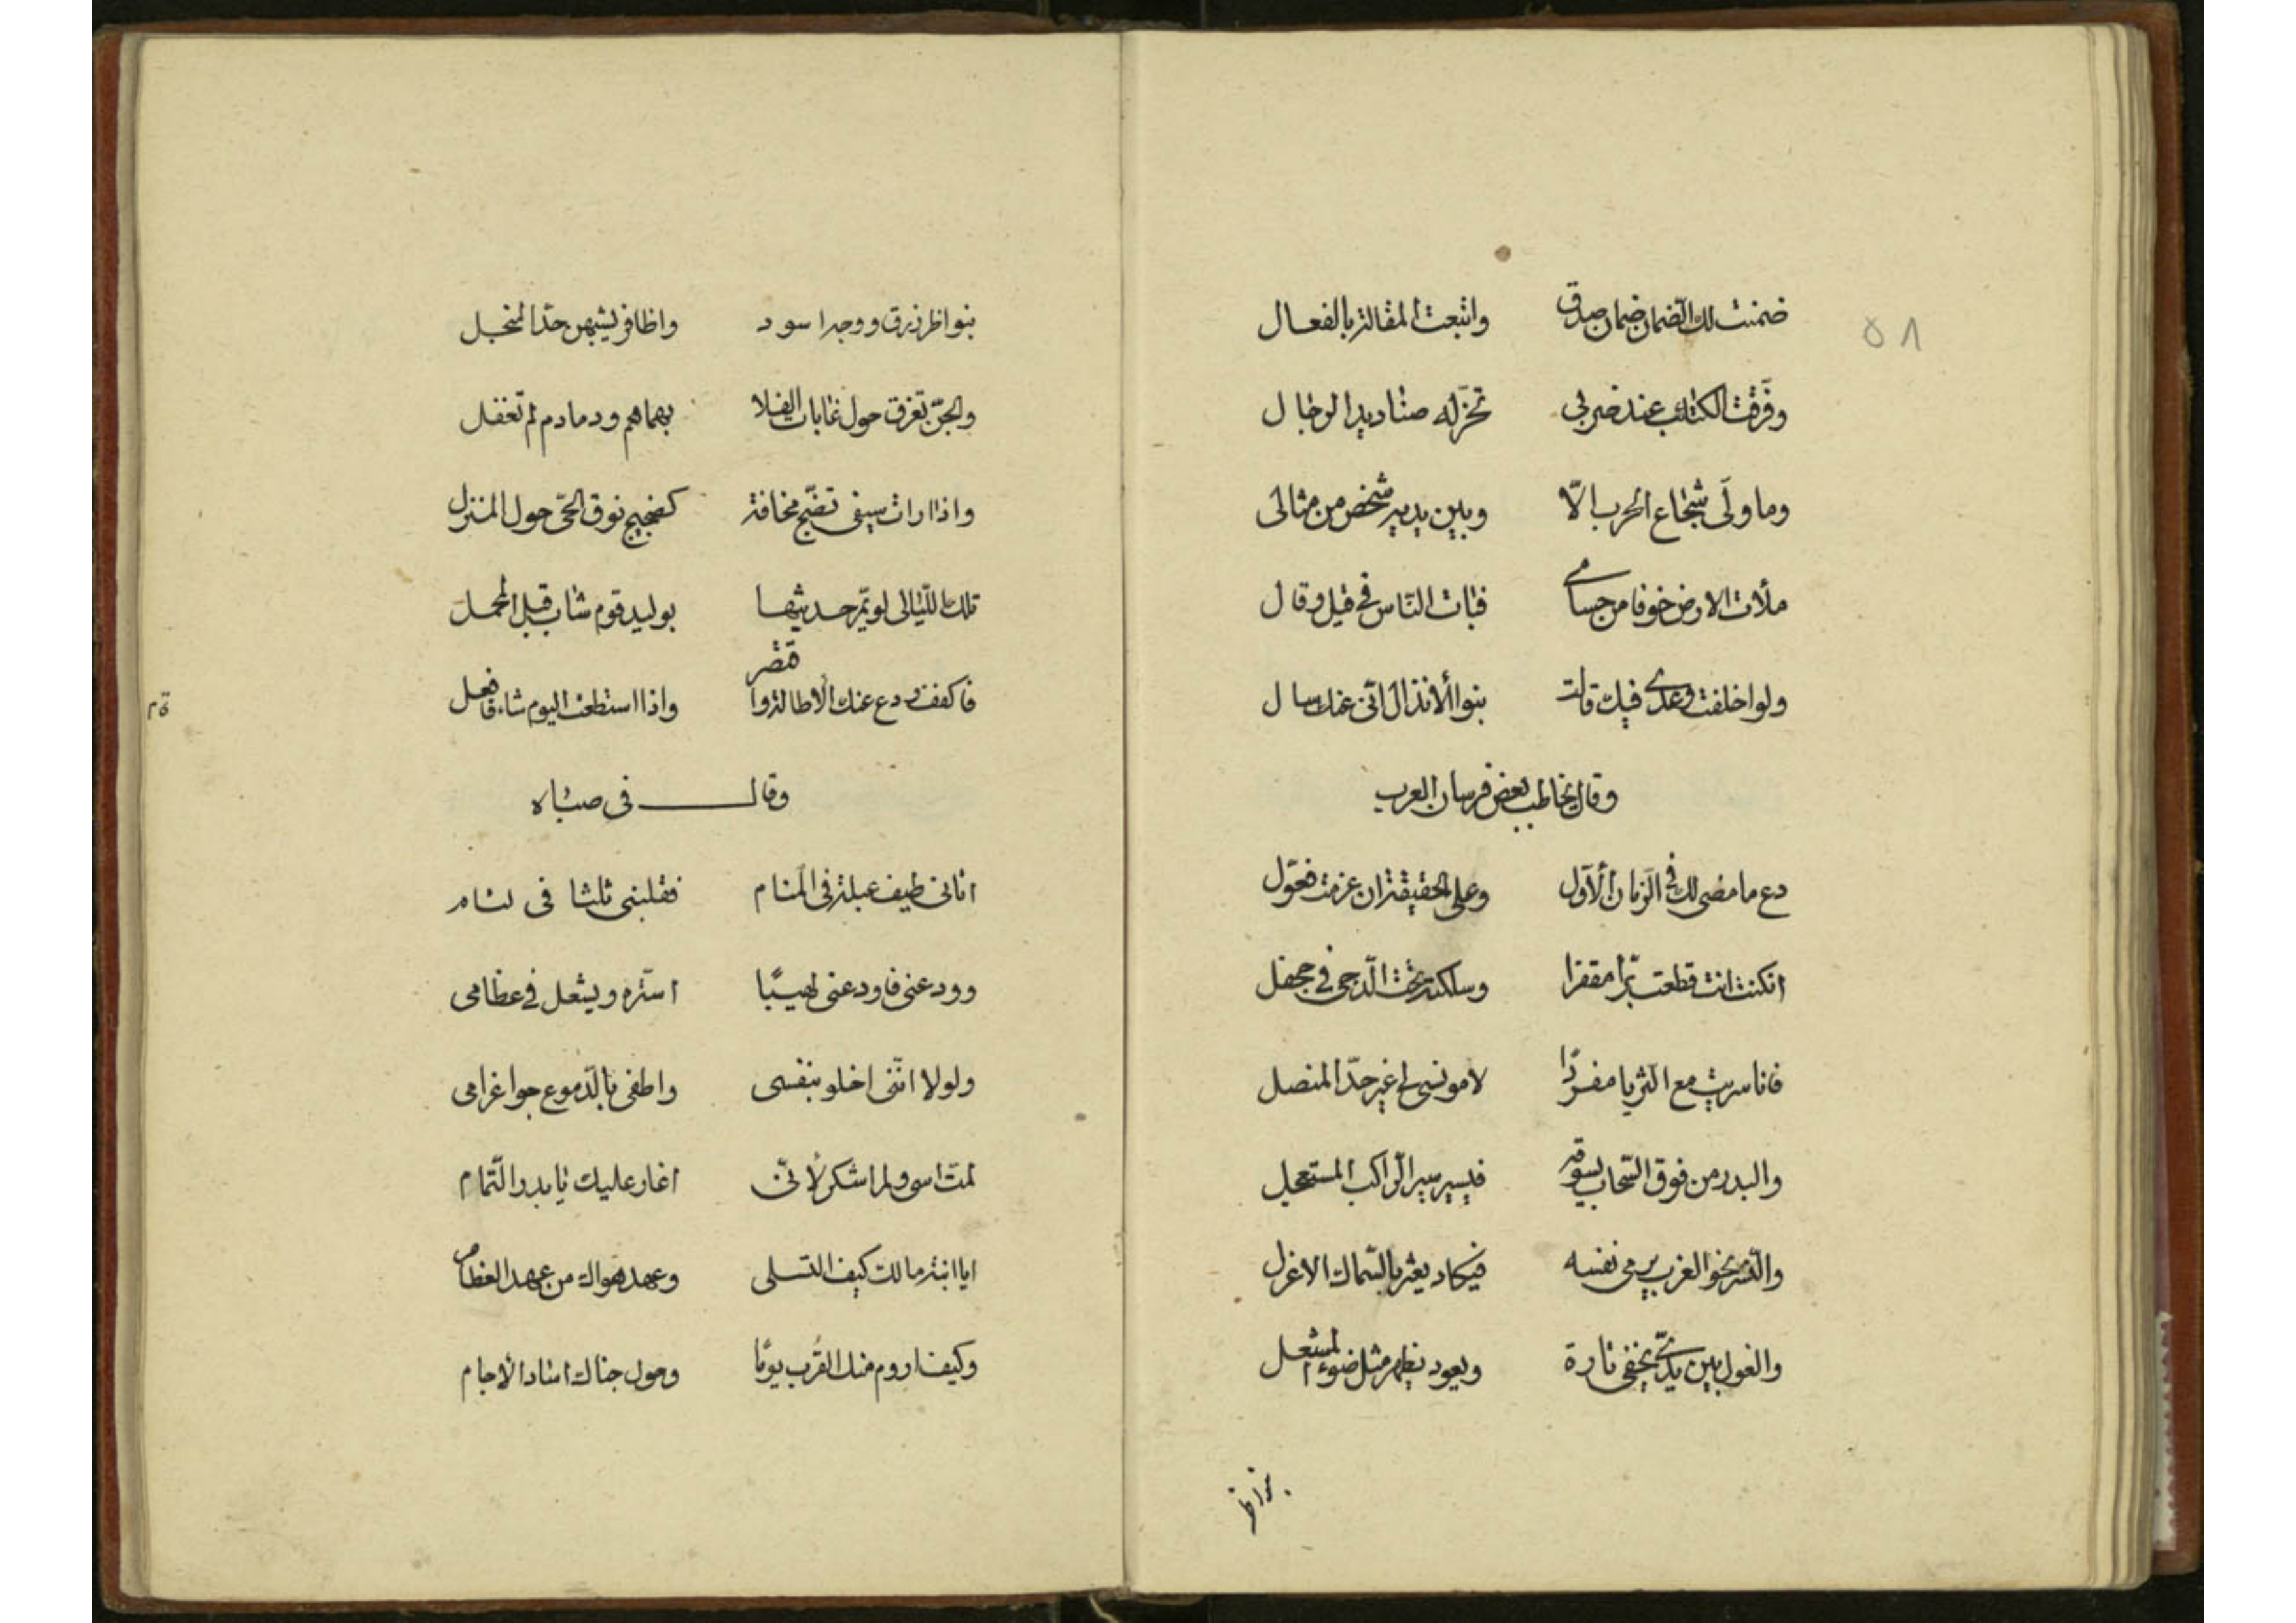 ٥٨
ضمنت لك الضمان ضمان صدق واتبعت المقالة بالفعال
وفرّقت الكتائب عند ضربى تخرّ له صناديد الرجال
وما ولّى شجاع الحرب الّا وبين يديه شخص من مثالى
ملأت الارض خوفا من حسامى فبات النّاس فى قيل وقال
ولو اخلفت وعدى فيك قالت بنوا الأنذال انّى عنك سال
وقال يخاطب بعض فرسان العرب
دع ما مضى لك فى الزمان الأوّل وعلى الحقيقة ان عزمت فعوّل
انكنت انت قطعت برّا مقفرا وسلكته تحت الدّجى فى جحفل
فانا سريت مع الثريا مفردًا لا مونس لى غير حدّ المنصل
والبدر من فوق السّحاب يسوقه فيسير سير الرّاكب المستعجل
والنّسر نحو الغرب يرمى نفسه فيكاد يعثر بالسّماك الاعزل
والغول بين يدىّ يخفى تارة ويعود يظهر مثل ضوء المشعل
بنواظر
بنواظر زرق ووجه اسود واظافر يشبهن حدّ المنجل
والجنّ تفرق حول غابات الفلا بهماهم ودمادم لم تغفل
واذا رات سيفى تضجّ مخافة كضجيج نوق الحىّ حول المنزل
تلك اللّيالى لو يمّر حديثها بوليد قوم شاب قبل المحمل
فاكفف ودع عنك الاطالة واقتصر واذا استطعت اليوم شاء فافعل
وقال فى صباه
اتانى طيف عبلة فى المنام فقبلنى ثلثا فى لثام
وودعنى فاودعنى لهيبًا استّره ويشعل فى عظامى
ولولا انّنى اخلو بنفسى واطفى بالدّموع جوا غرامى
لمت اسى ولم اشكر لأنّى اغار عليك يا بدر التّمام
ايا ابنة مالك كيف التسلى وعهد هواك من عهد الفطام
وكيف اروم منك القُرب يومًا وحول خباك اساد الأجام